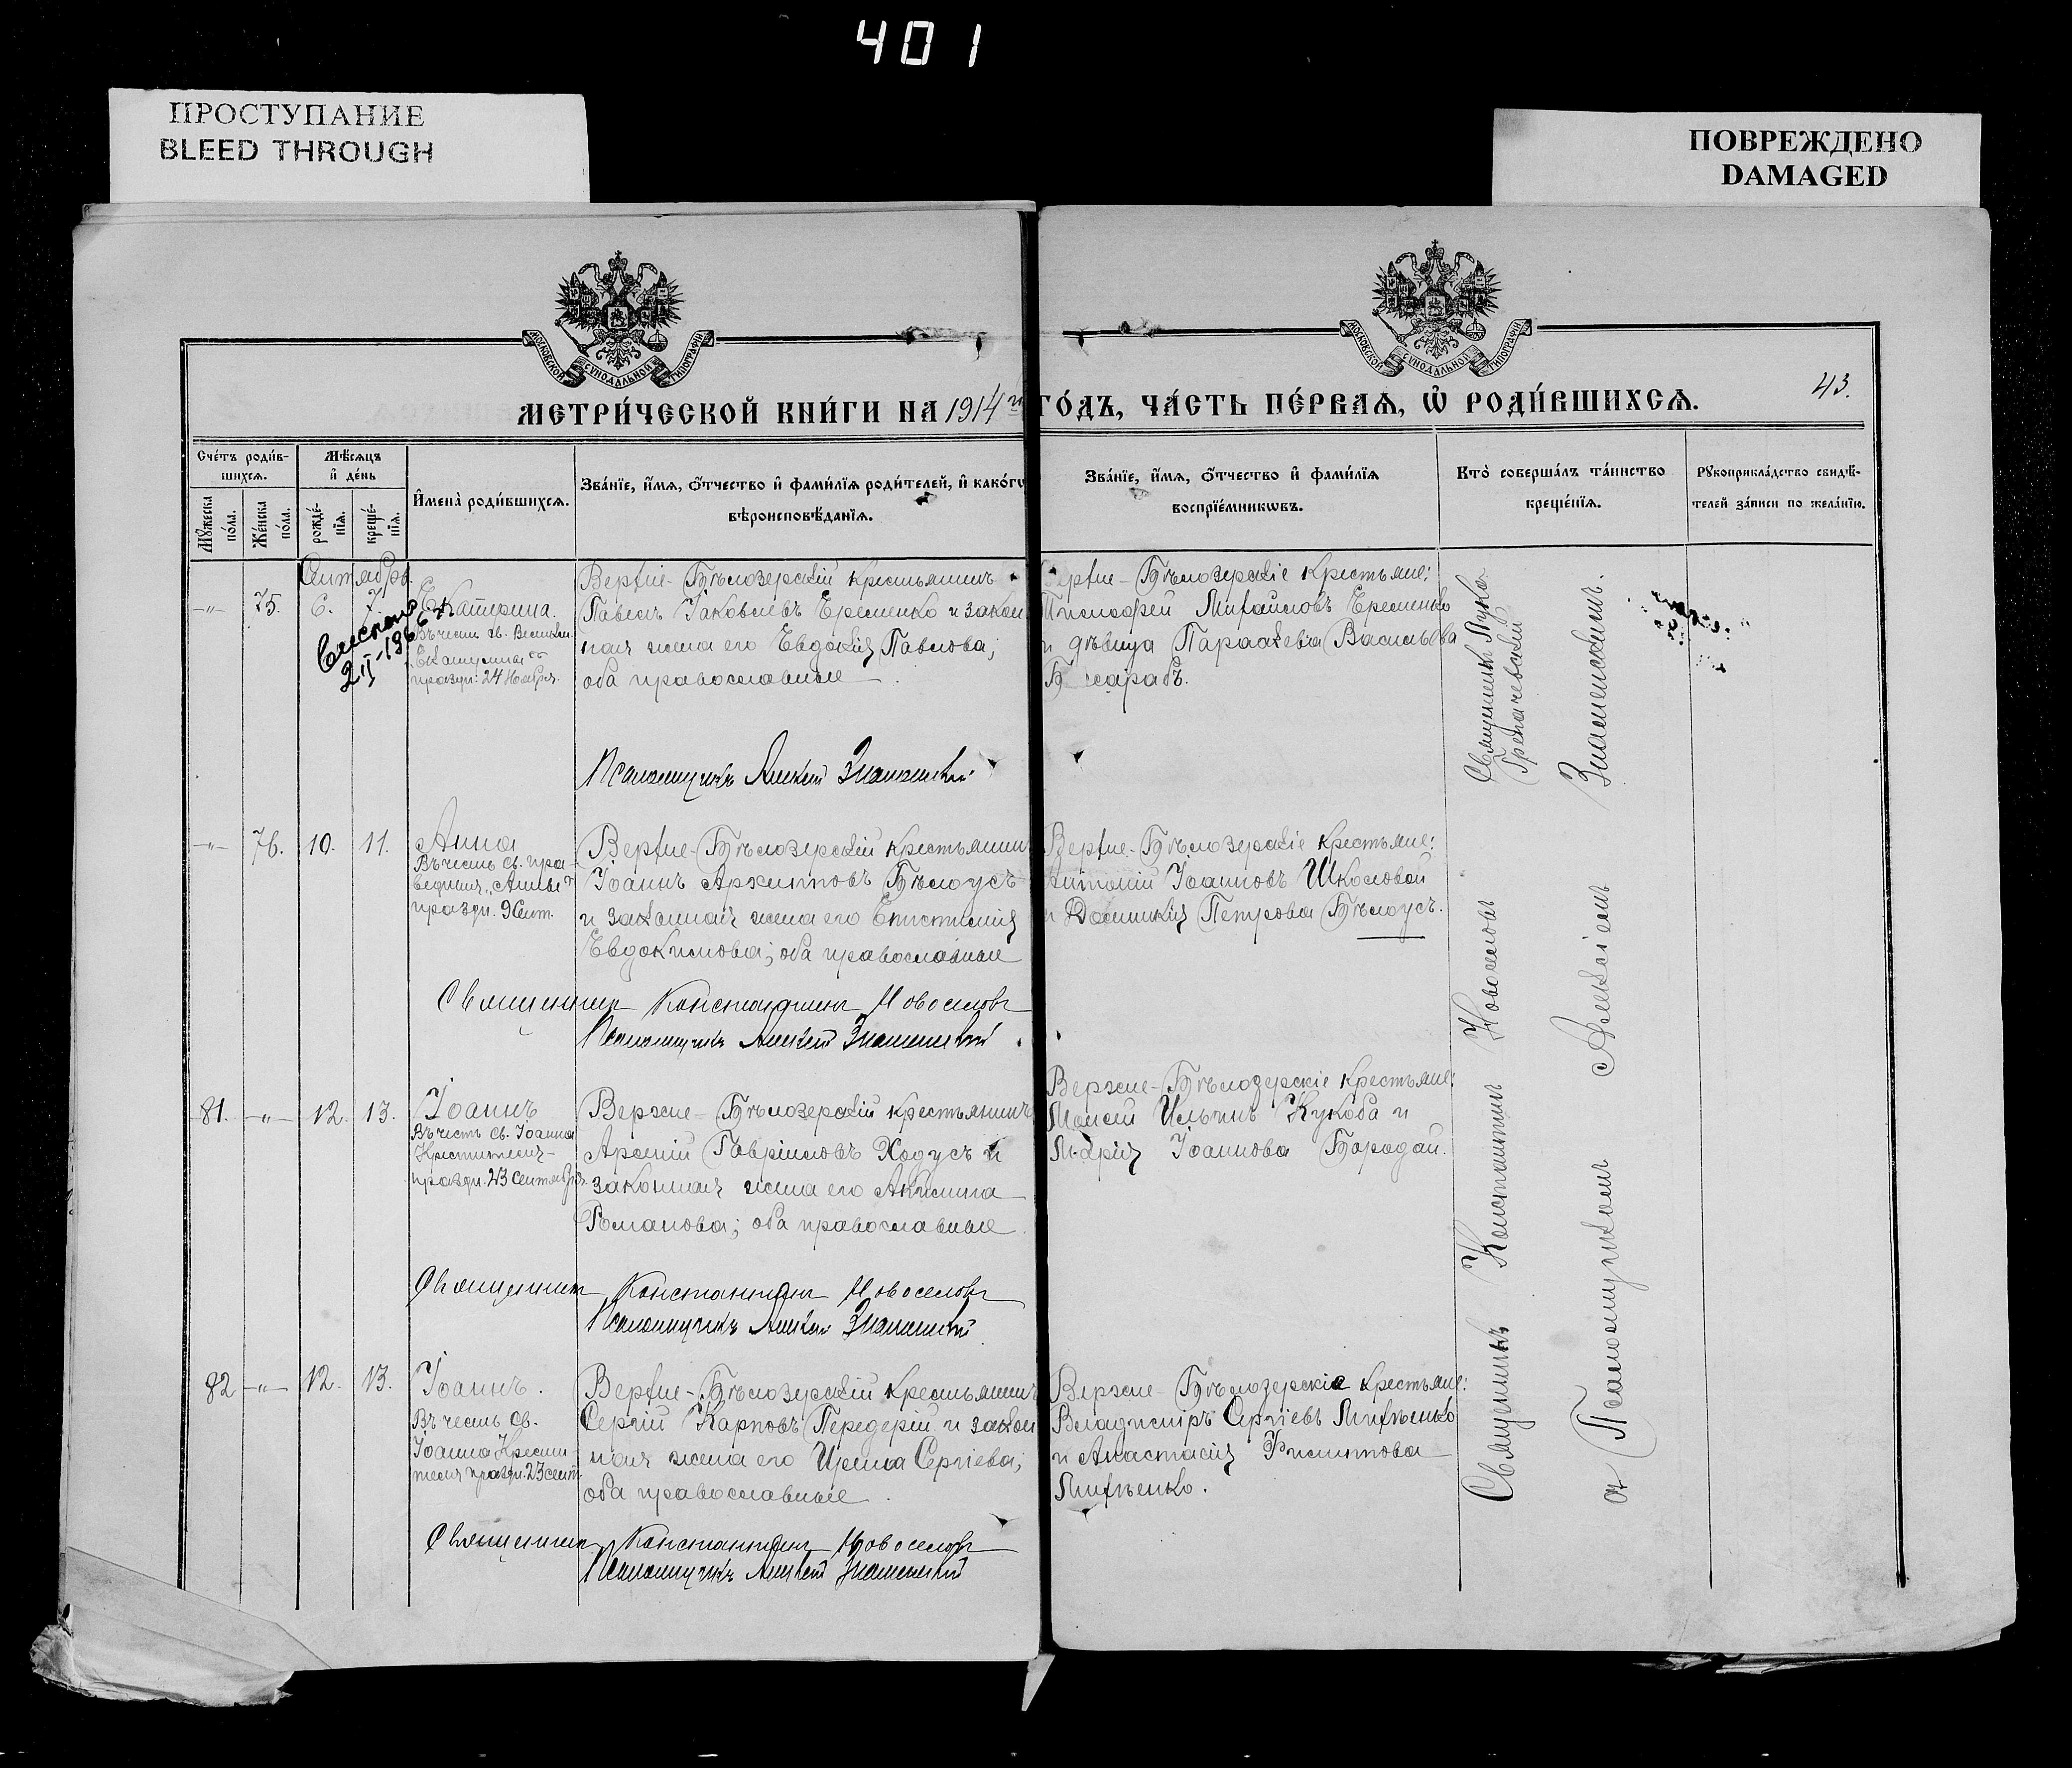 401
ПРОСТУПАНИЕ
BLEED THROUGH
ПОВРЕЖДЕНО
DAMAGED
МОСКОВСКОЙ СѴНОДАЛЬНОЙ ТИПОГРАФІИ
МОСКОВСКОЙ СѴНОДАЛЬНОЙ ТИПОГРАФІИ
43.
МЕТРИ́ЧЕСКОЙ КНИ́ГИ НА 1914й ГО́ДЪ, ЧА́СТЬ ПЕ́РВАѦ, Ѡ҆ РОДИ́ВШИХСѦ.
Сче́тъ роди́в-
шихсѧ.
Мꙋ́жеска
по́ла.
Же́нска
по́ла.
Мѣ́сѧцъ
и҆ де́нь
рожде́-
нїѧ.
креще́-
нїѧ.
И҆мена̀ роди́вшихсѧ.
Зва́нїе, и҆́мѧ, ѻ҆́тчество и҆ фами́лїѧ роди́телей, и҆ како́гѡ
вѣроисповѣ́данїѧ.
Зва́нїе, и҆́мѧ, ѻ҆́тчество и҆ фами́лїѧ
воспрїе́мникѡвъ.
Кто̀ соверша́лъ та́инство
креще́нїѧ.
Рꙋкоприкла́дство свидѣ́-
телей за́писи по жела́нїю.
Сентябрь.
-"- 75. 6. 7.
Екатерина.
Въ честь св. Великом.
Екатерины
праздн. 24 Ноября.
Верхне-Бѣлозерскій крестьянинъ
Павелъ Іаковлевъ Еременко и закон
ная жена его Евдокія Павлова;
оба православные
Псаломщикъ Алексѣй Знаменскій
Верхне-Бѣлозерскіе крестьяне:
Тимофей Михайловъ Еременко
и дѣвица Параскева Васильева
-"- 76. 10. 11.
Анна
Въ честь св. пра-
ведныя "Анны"
праздн. 9 Сент.
Верхне-Бѣлозерскій крестьянин
Іоаннъ Архиповъ Бѣлоусъ
и законная жена его Епистимія
Евдокимова; оба православные
Священникъ Константинъ Новоселовъ
Псаломщикъ Алексѣй Знаменскій
Верхне-Бѣлозерскіе крестьяне:
Іоанновъ Школовой
и Домникія Петрова Бѣлоусъ.
81. -"- 12. 13.
Іоаннъ
Въ честь св. Іоанна
Крестителя
праздн. 23 Сентября.
Верхне-Бѣлозерскій крестьянинъ
Арсеній Гавріиловъ Ходусъ и
законная жена его Акилина
Романова; оба православные
Священникъ Константинъ Новоселовъ
Псаломщикъ Алексѣй Знаменскій
Верхне-Бѣлозерскіе крестьяне:
Моисей Ильинъ Кукоба и
Марія Іоаннова Бородай.
82 -"- 12. 13.
Іоаннъ.
Въ честь св.
Іоанна Крести-
теля праздн. 23 сент.
Верхне-Бѣлозерскій крестьянинъ
Сергій Карповъ Передерій и закон
ная жена его Ирина Сергіева;
оба православные.
Священникъ Константинъ Новоселовъ
Псаломщикъ Алексѣй Знаменскій
Верхне-Бѣлозерскіе крестьяне:
Владиміръ Сергіевъ Михненко
и Анастасія Филиппова
Михненко.
Священникъ Лука
Священникъ Константинъ Новоселовъ
съ Псаломщикомъ Алексіемъ Знаменскимъ.